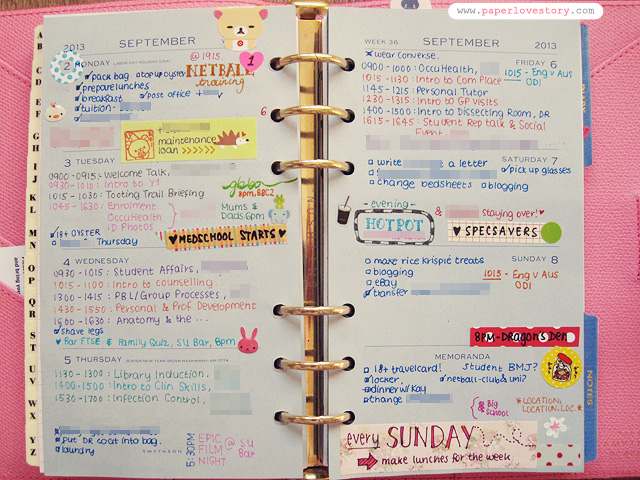 www.paperlovestory.com
2013 SEPTEMBER
2 MONDAY LABOR DAY HOLIDAY (USA)
pack bag top up oyster
prepare lunches
breakfast post office +
tuition-
@ 1915
NETBALL
training
1
6
+
maintenance
loan >>>>>>
3 TUESDAY
0900-0915: Welcome Talk,
0930-1010: Intro to Y1
1015-1030: Tooting Trail Briefing
1045-1630: Enrolment
OccuHealth
iD Photos
8pm, BBC2
Mums &
Dads 6pm
18+ OYSTER
Thursday
♥ MEDSCHOOL STARTS ♥
4 WEDNESDAY
0930-1015: Student Affairs,
1015-1100: Intro to counselling
1300-1415: PBL/Group Processes,
1430-1550: Personal & Prof Development
1500-1630: Anatomy & the ...
shave legs
♥ Bar FTSE & Family Quiz, SU Bar, 8pm
5 THURSDAY JEWISH NEW YEAR (ROSH HASHANAH) AM 5774
1130-1300: Library Induction.
1400-1500: Intro to Clin Skills,
1530-1700: Infection Control,
put DR coat into bag.
laundry
5:30PM
EPIC
FILM @ SU
NIGHT Bar
SMYTHSON
A
B
CD
EF
G
H
I
J
K
L
M
N
O
P
QR
S
T
U
V
W
X
YZ
WEEK 36 SEPTEMBER 2013
FRIDAY 6
wear Converse.
0900-1000: OccuHealth,
1015-1130: Intro to Com Place
1015-Eng v Aus
ODI
1145-1215: Personal Tutor
1230-1315: Intro to GP visits
1400-1500: Intro to Dissecting Room, DR
1615-1645: Student Rep talk & Social
Event
SATURDAY 7
write a letter
pick up glasses
change bedsheets blogging
-evening-
HOTPOT
& staying over!♥
♥ SPECSAVERS
SUNDAY 8
make rice krispie treats
blogging
eBay
transfer
1015-Eng v Aus
ODI
8PM-Dragon's Den
MEMORANDA
18+ travelcard! student BMJ?
locker, netball-club & uni?
dinner w/ Kay
change
& Big
School
*LOCATION,
LOCATION, LOC.*
every SUNDAY
make lunches for the week
NOTES